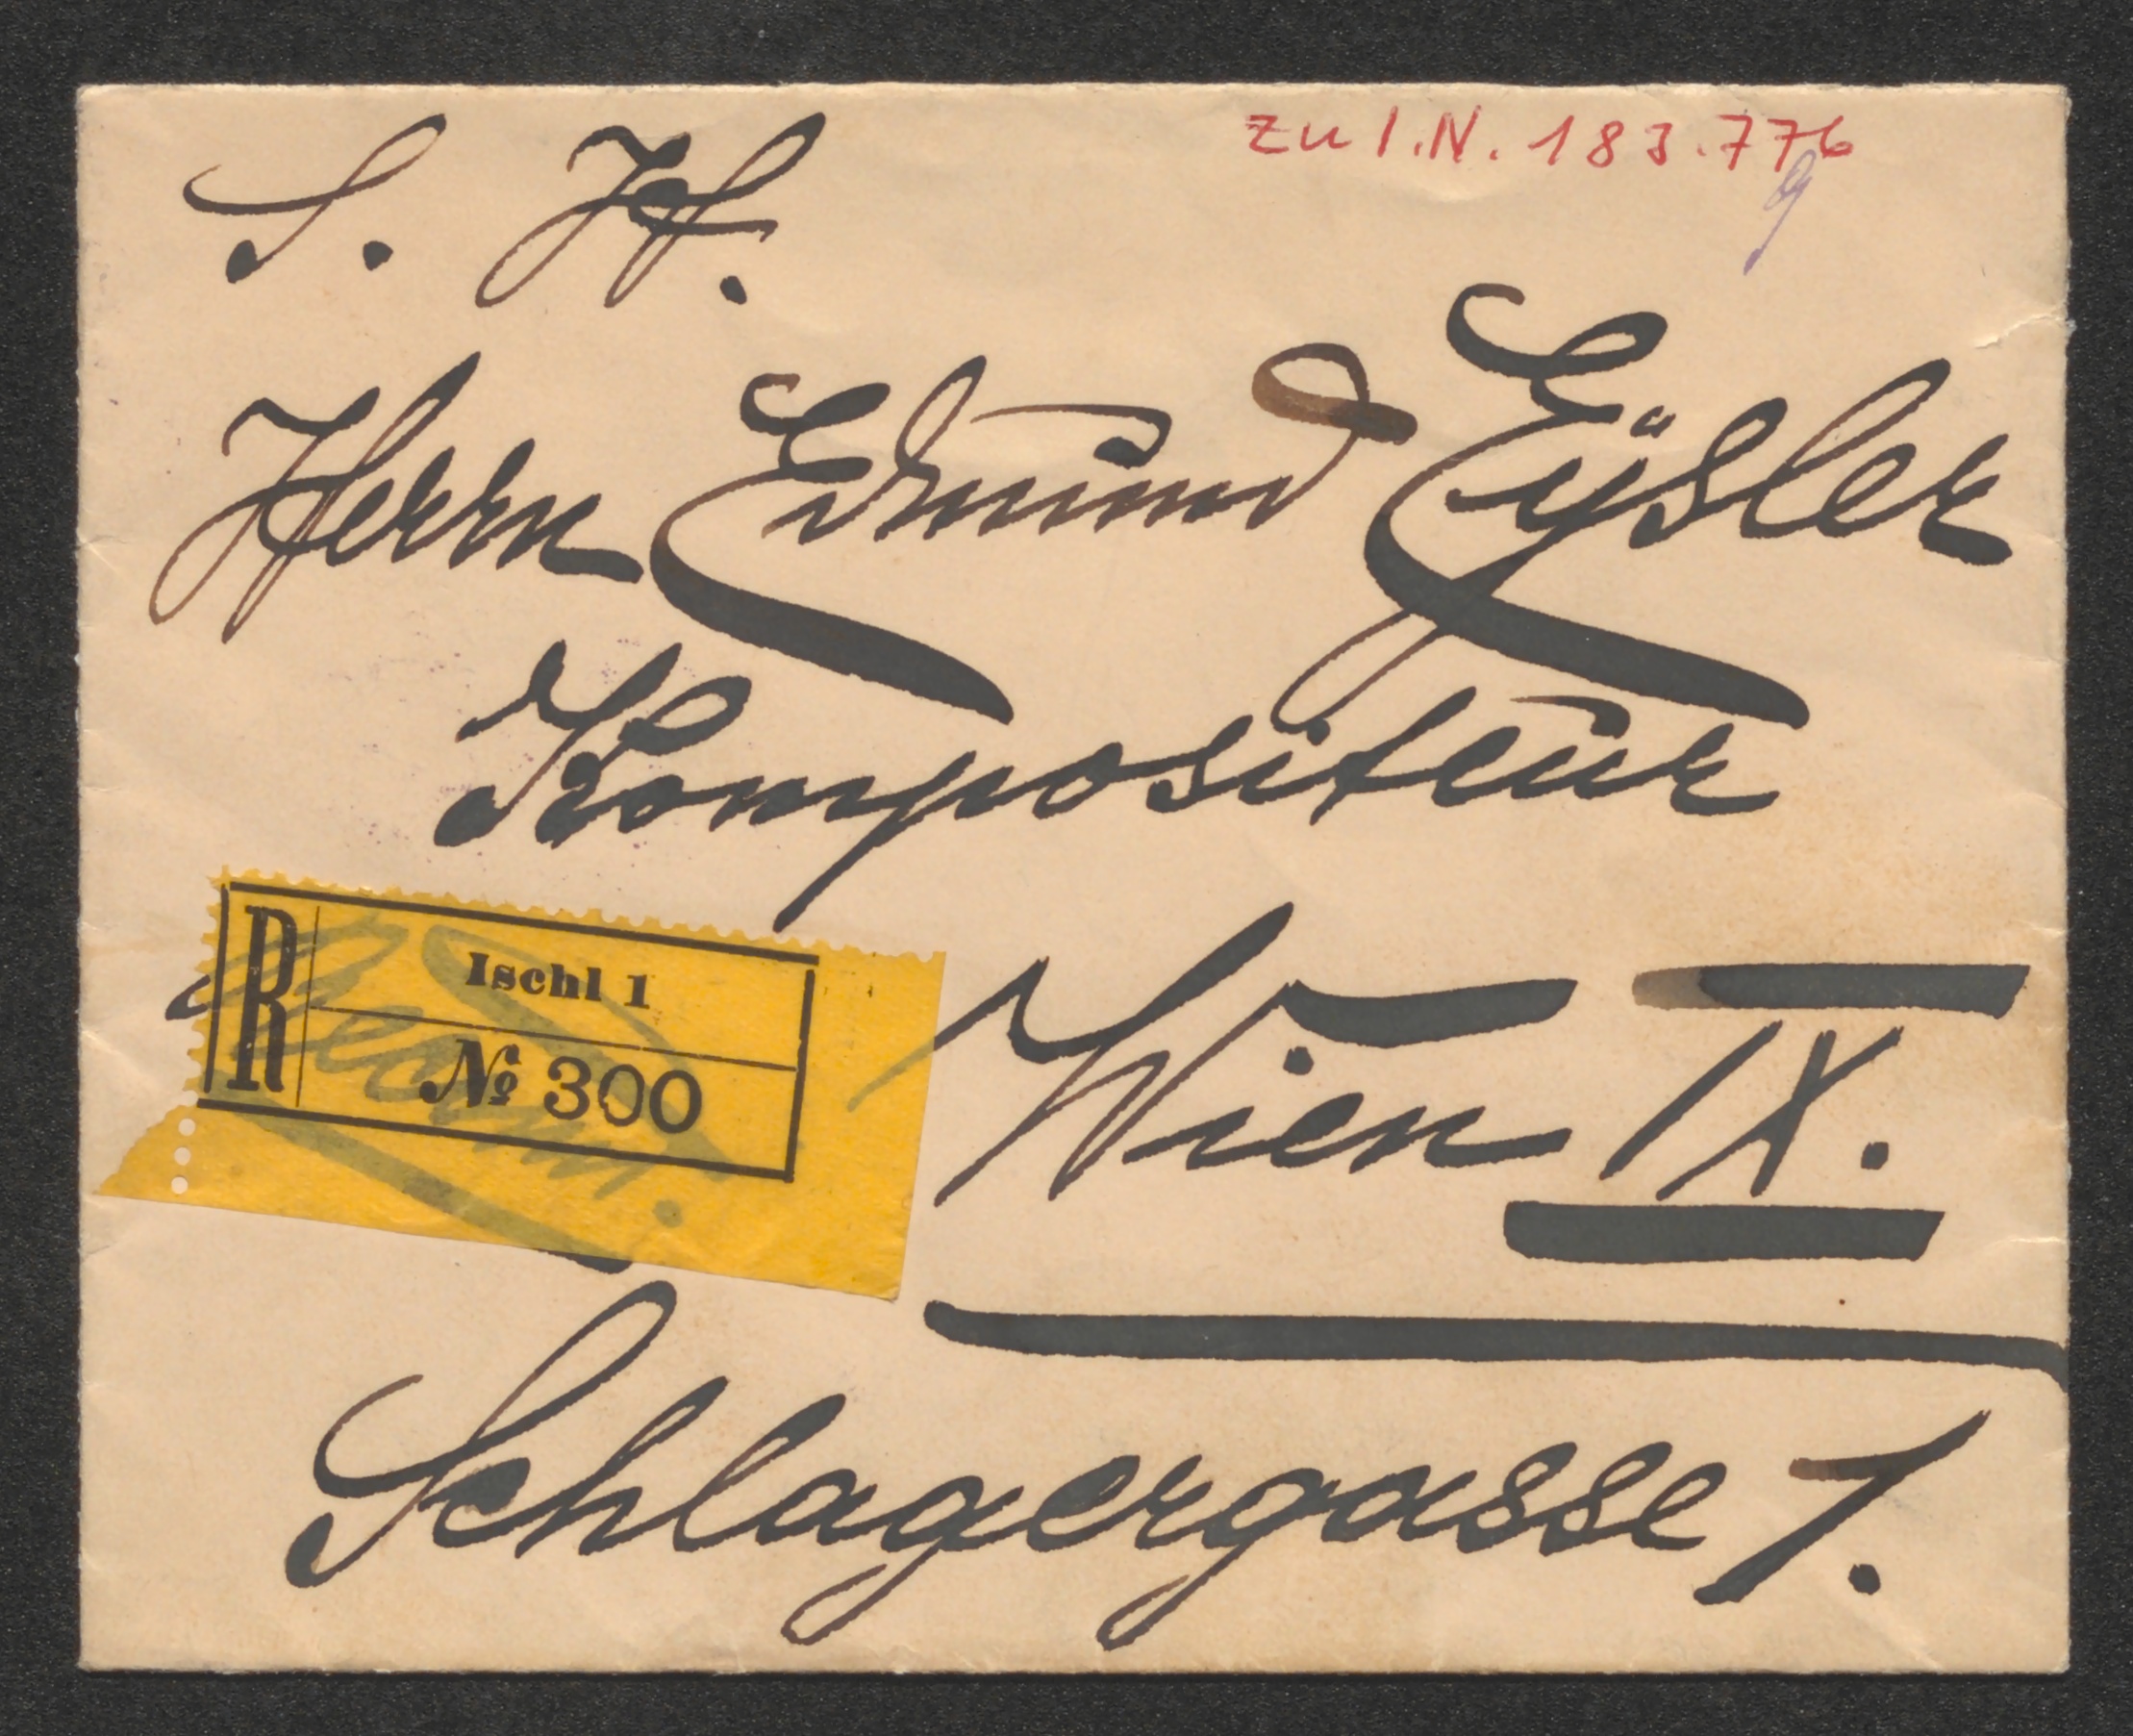 zu I.N. 183.776
S. H.
Herrn Edmund Eysler
Kompositeur
R Ischl 1
№ 300
Recom.
Wien IX.
Schlagergasse 1.